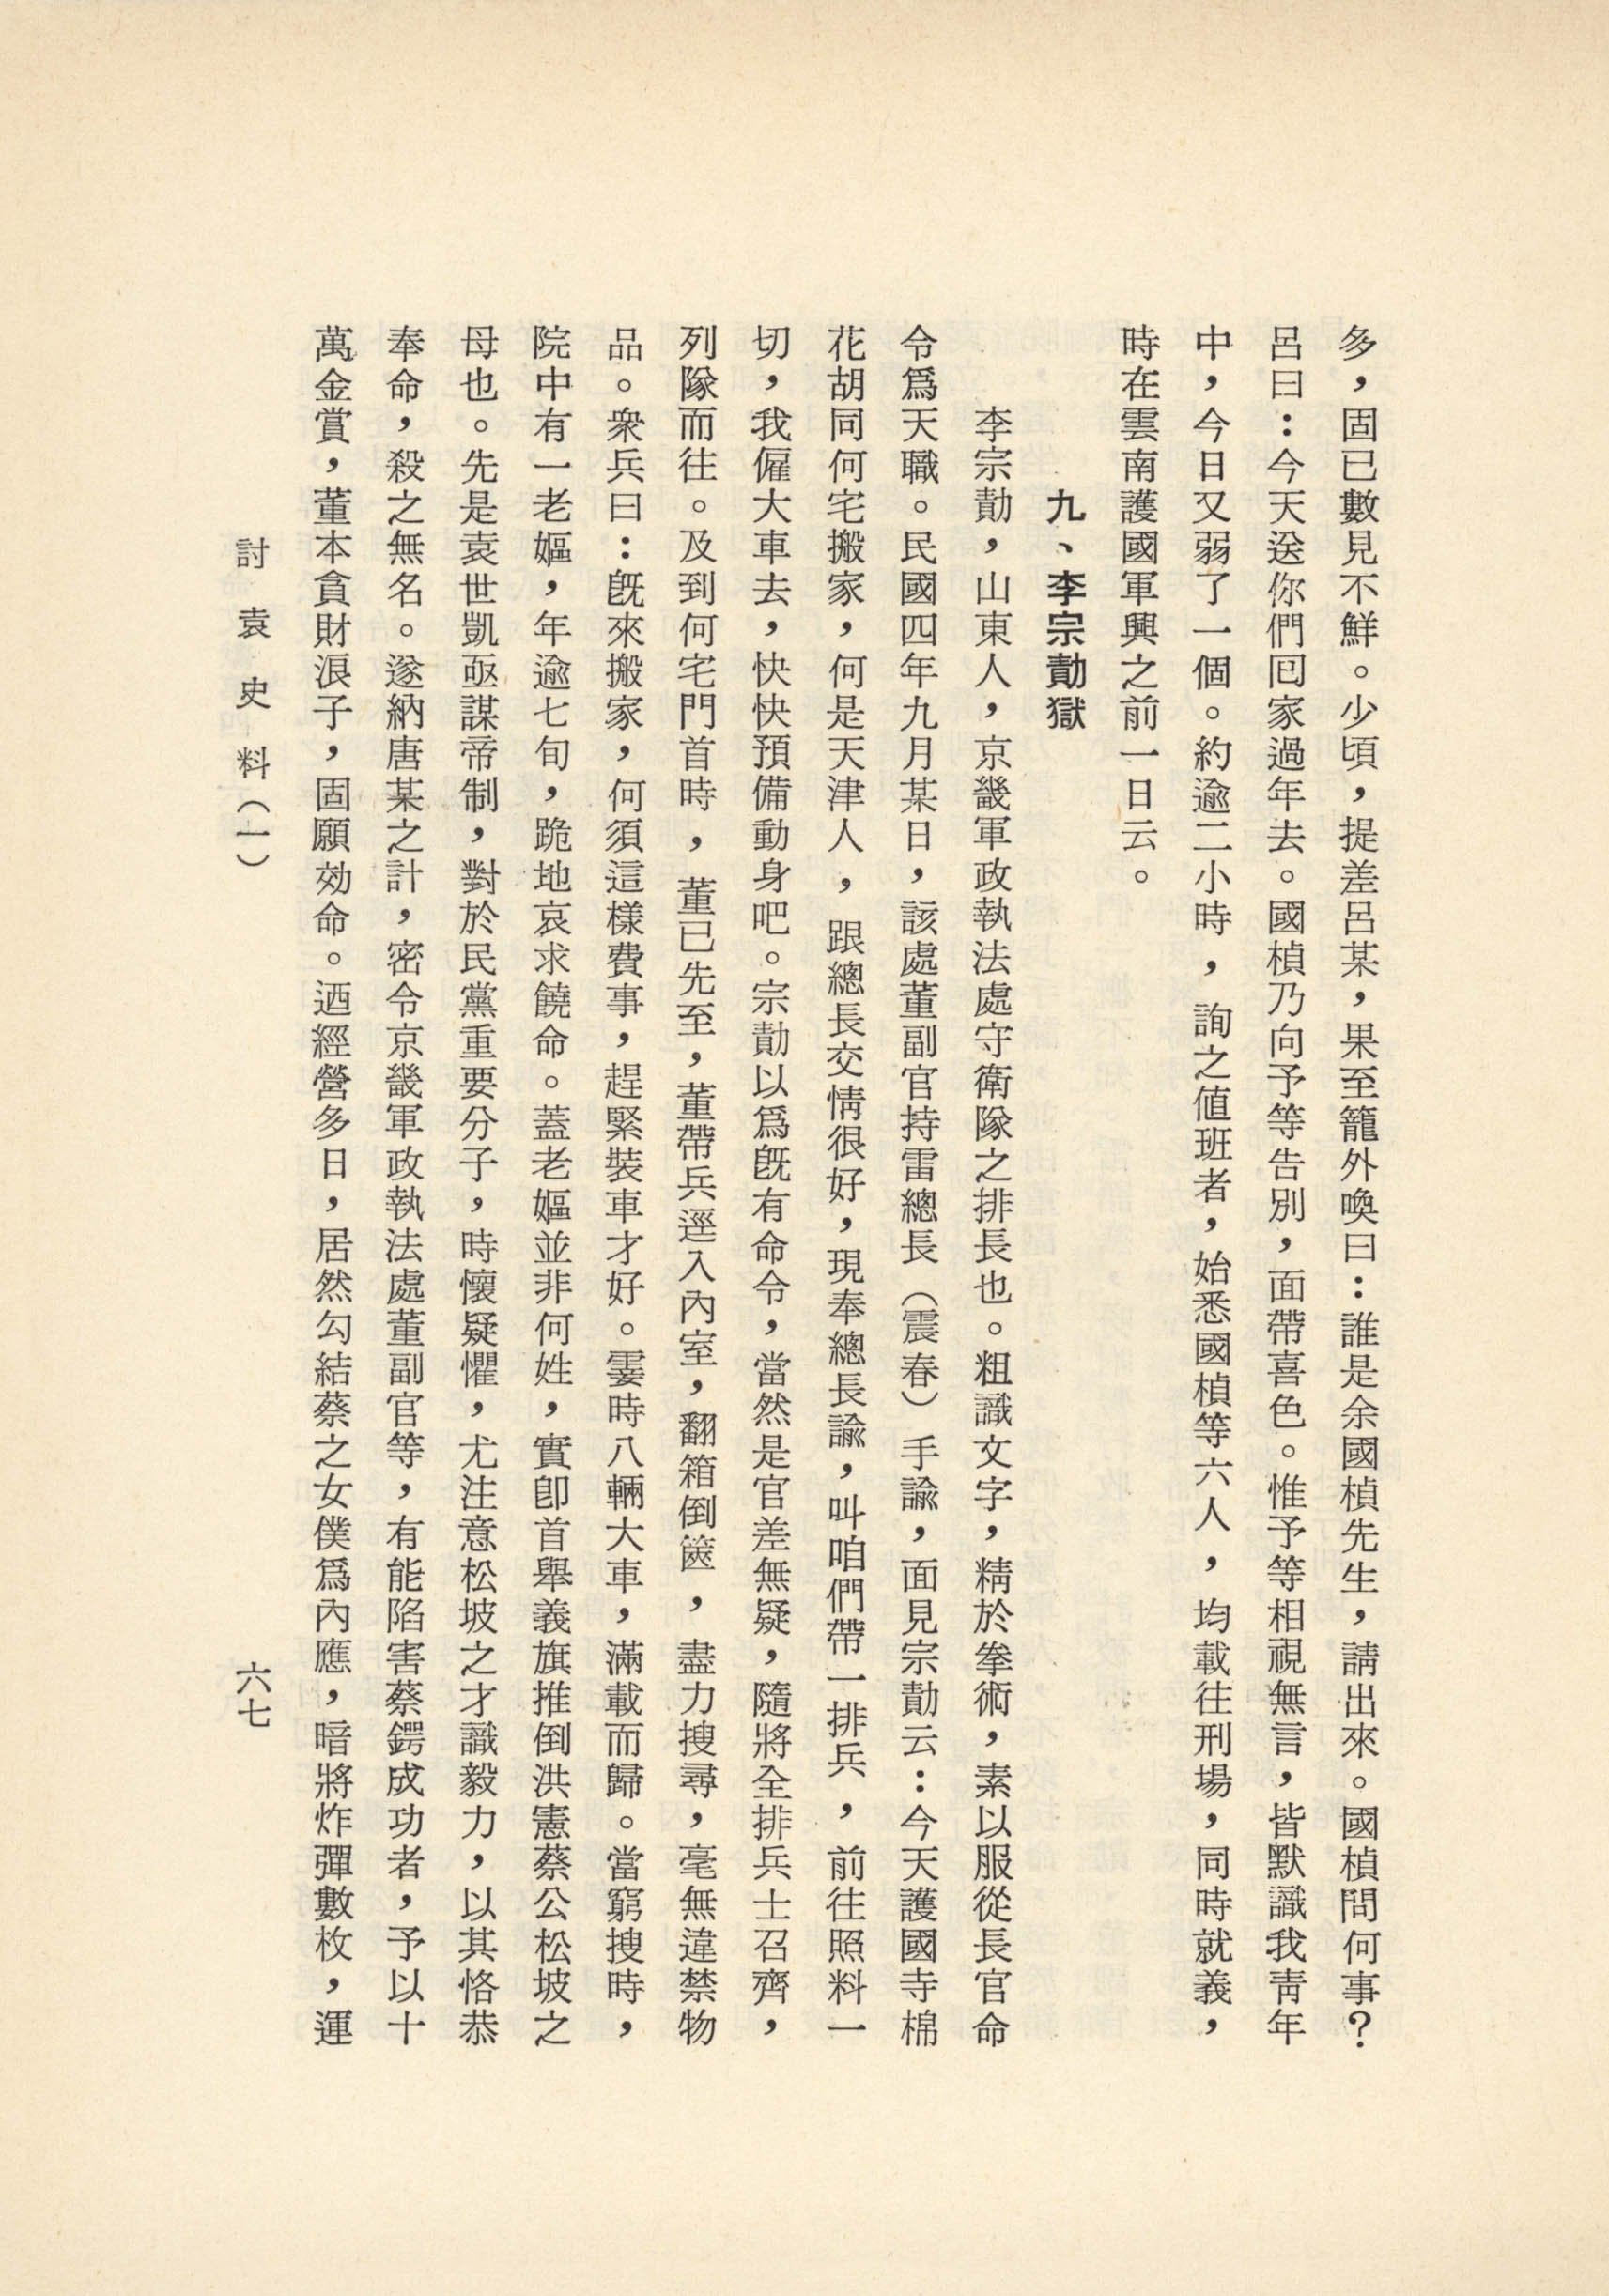 多，固已數見不鮮。少頃，提差呂某，果至籠外喚曰：誰是余國楨先生，請出來。國楨問何事？
呂曰：今天送你們囘家過年去。國楨乃向予等告別，面帶喜色。惟予等相視無言，皆默識我靑年
中，今日又弱了一個。約逾二小時，詢之値班者，始悉國楨等六人，均載往刑場，同時就義，
時在雲南護國軍興之前一日云。
九、李宗勣獄
李宗勣，山東人，京畿軍政執法處守衛隊之排長也。粗識文字，精於拳術，素以服從長官命
令爲天職。民國四年九月某日，該處董副官持雷總長（震春）手諭，面見宗勣云：今天護國寺棉
花胡同何宅搬家，何是天津人，跟總長交情很好，現奉總長諭，叫咱們帶一排兵，前往照料一
切，我僱大車去，快快預備動身吧。宗勣以爲旣有命令，當然是官差無疑，隨將全排兵士召齊，
列隊而往。及到何宅門首時，董已先至，董帶兵逕入內室，翻箱倒篋，盡力搜尋，毫無違禁物
品。衆兵曰：旣來搬家，何須這樣費事，趕緊裝車才好。霎時八輛大車，滿載而歸。當窮搜時，
院中有一老嫗，年逾七旬，跪地哀求饒命。蓋老嫗並非何姓，實卽首舉義旗推倒洪憲蔡公松坡之
母也。先是袁世凱亟謀帝制，對於民黨重要分子，時懷疑懼，尤注意松坡之才識毅力，以其恪恭
奉命，殺之無名。遂納唐某之計，密令京畿軍政執法處董副官等，有能陷害蔡鍔成功者，予以十
萬金賞，董本貪財浪子，固願効命。迺經營多日，居然勾結蔡之女僕爲內應，暗將炸彈數枚，運
討袁史料（一）
六七